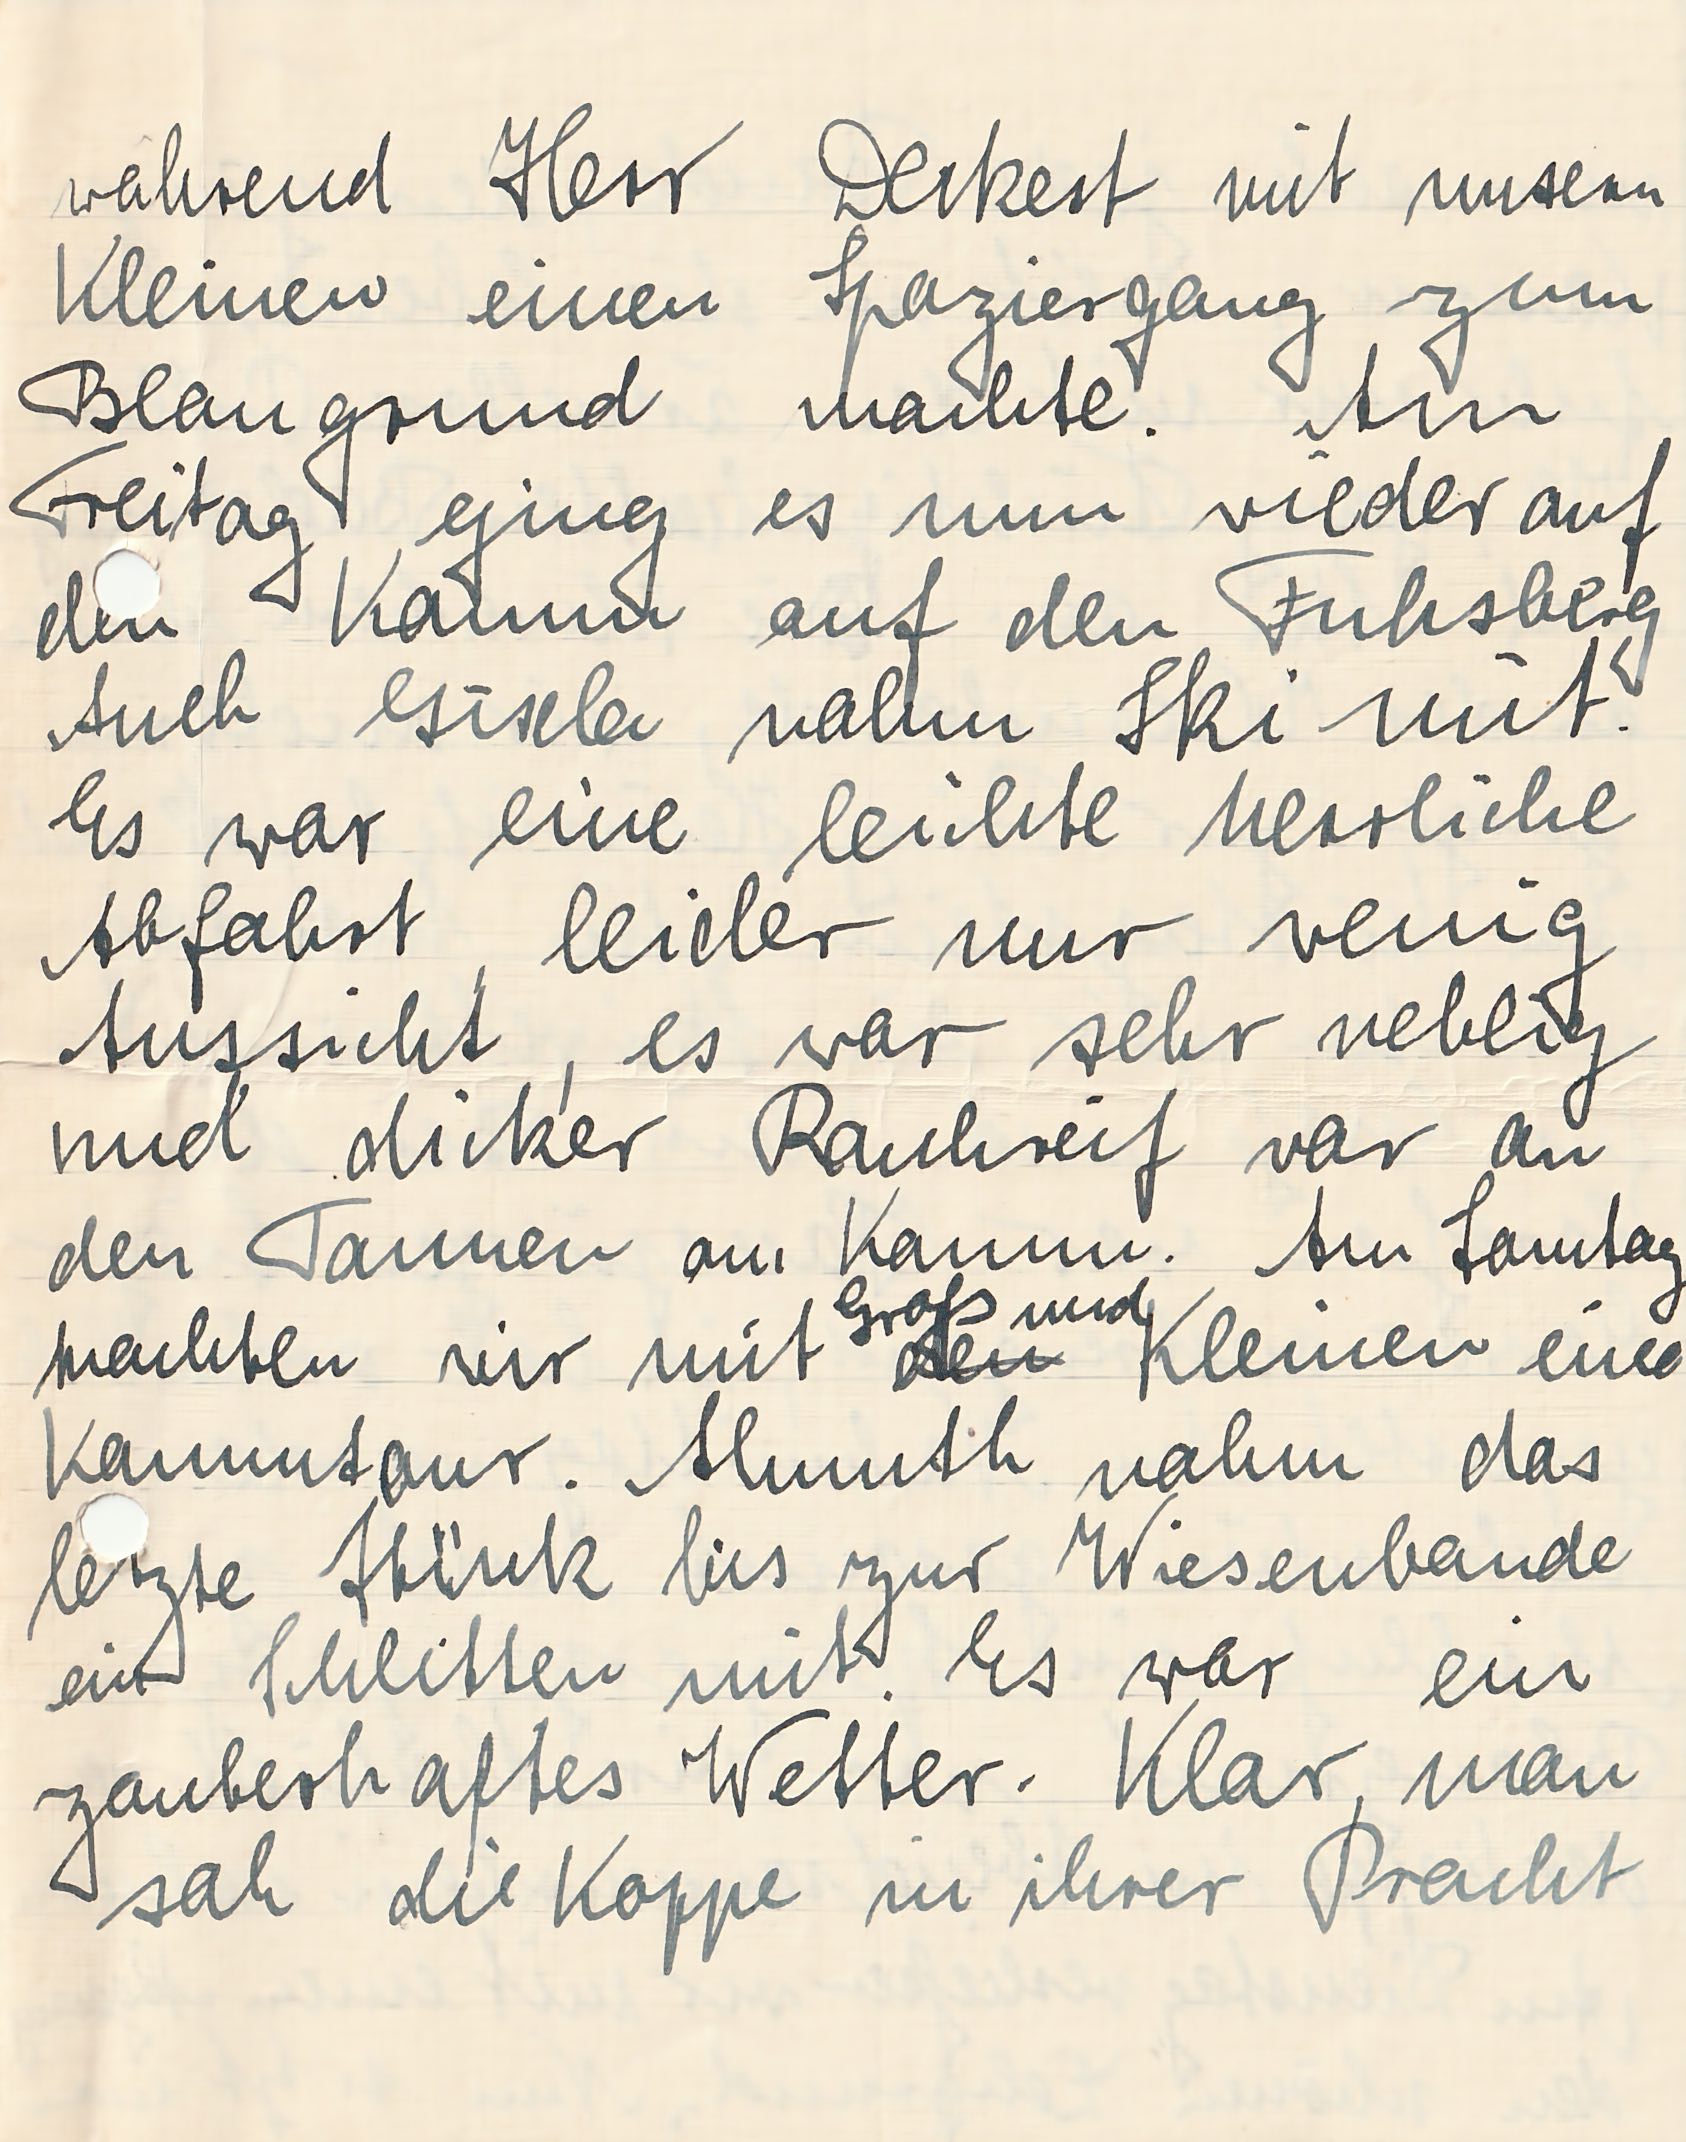 während Herr Deckert mit unsern
Kleinen einen Spaziergang zum
Blaugrund machte. Am
Freitag ging es nun wieder auf
den Kamm auf den Fuchsberg
Auch Gisela nahm Ski mit.
Es war eine leichte herrliche
Abfahrt, leider nur wenig
Aussicht, es war sehr neblig
und dicker Rauhreif war an
den Tannen am Kamm. Am Sonntag
machten wir mit Groß und Kleinen eine
Kammtour. Almuth nahm das
letzte Stück bis zur Wiesenbaude
ein Schlitten mit. Es war ein
zauberhaftes Wetter. Klar, man
sah die Koppe in ihrer Pracht